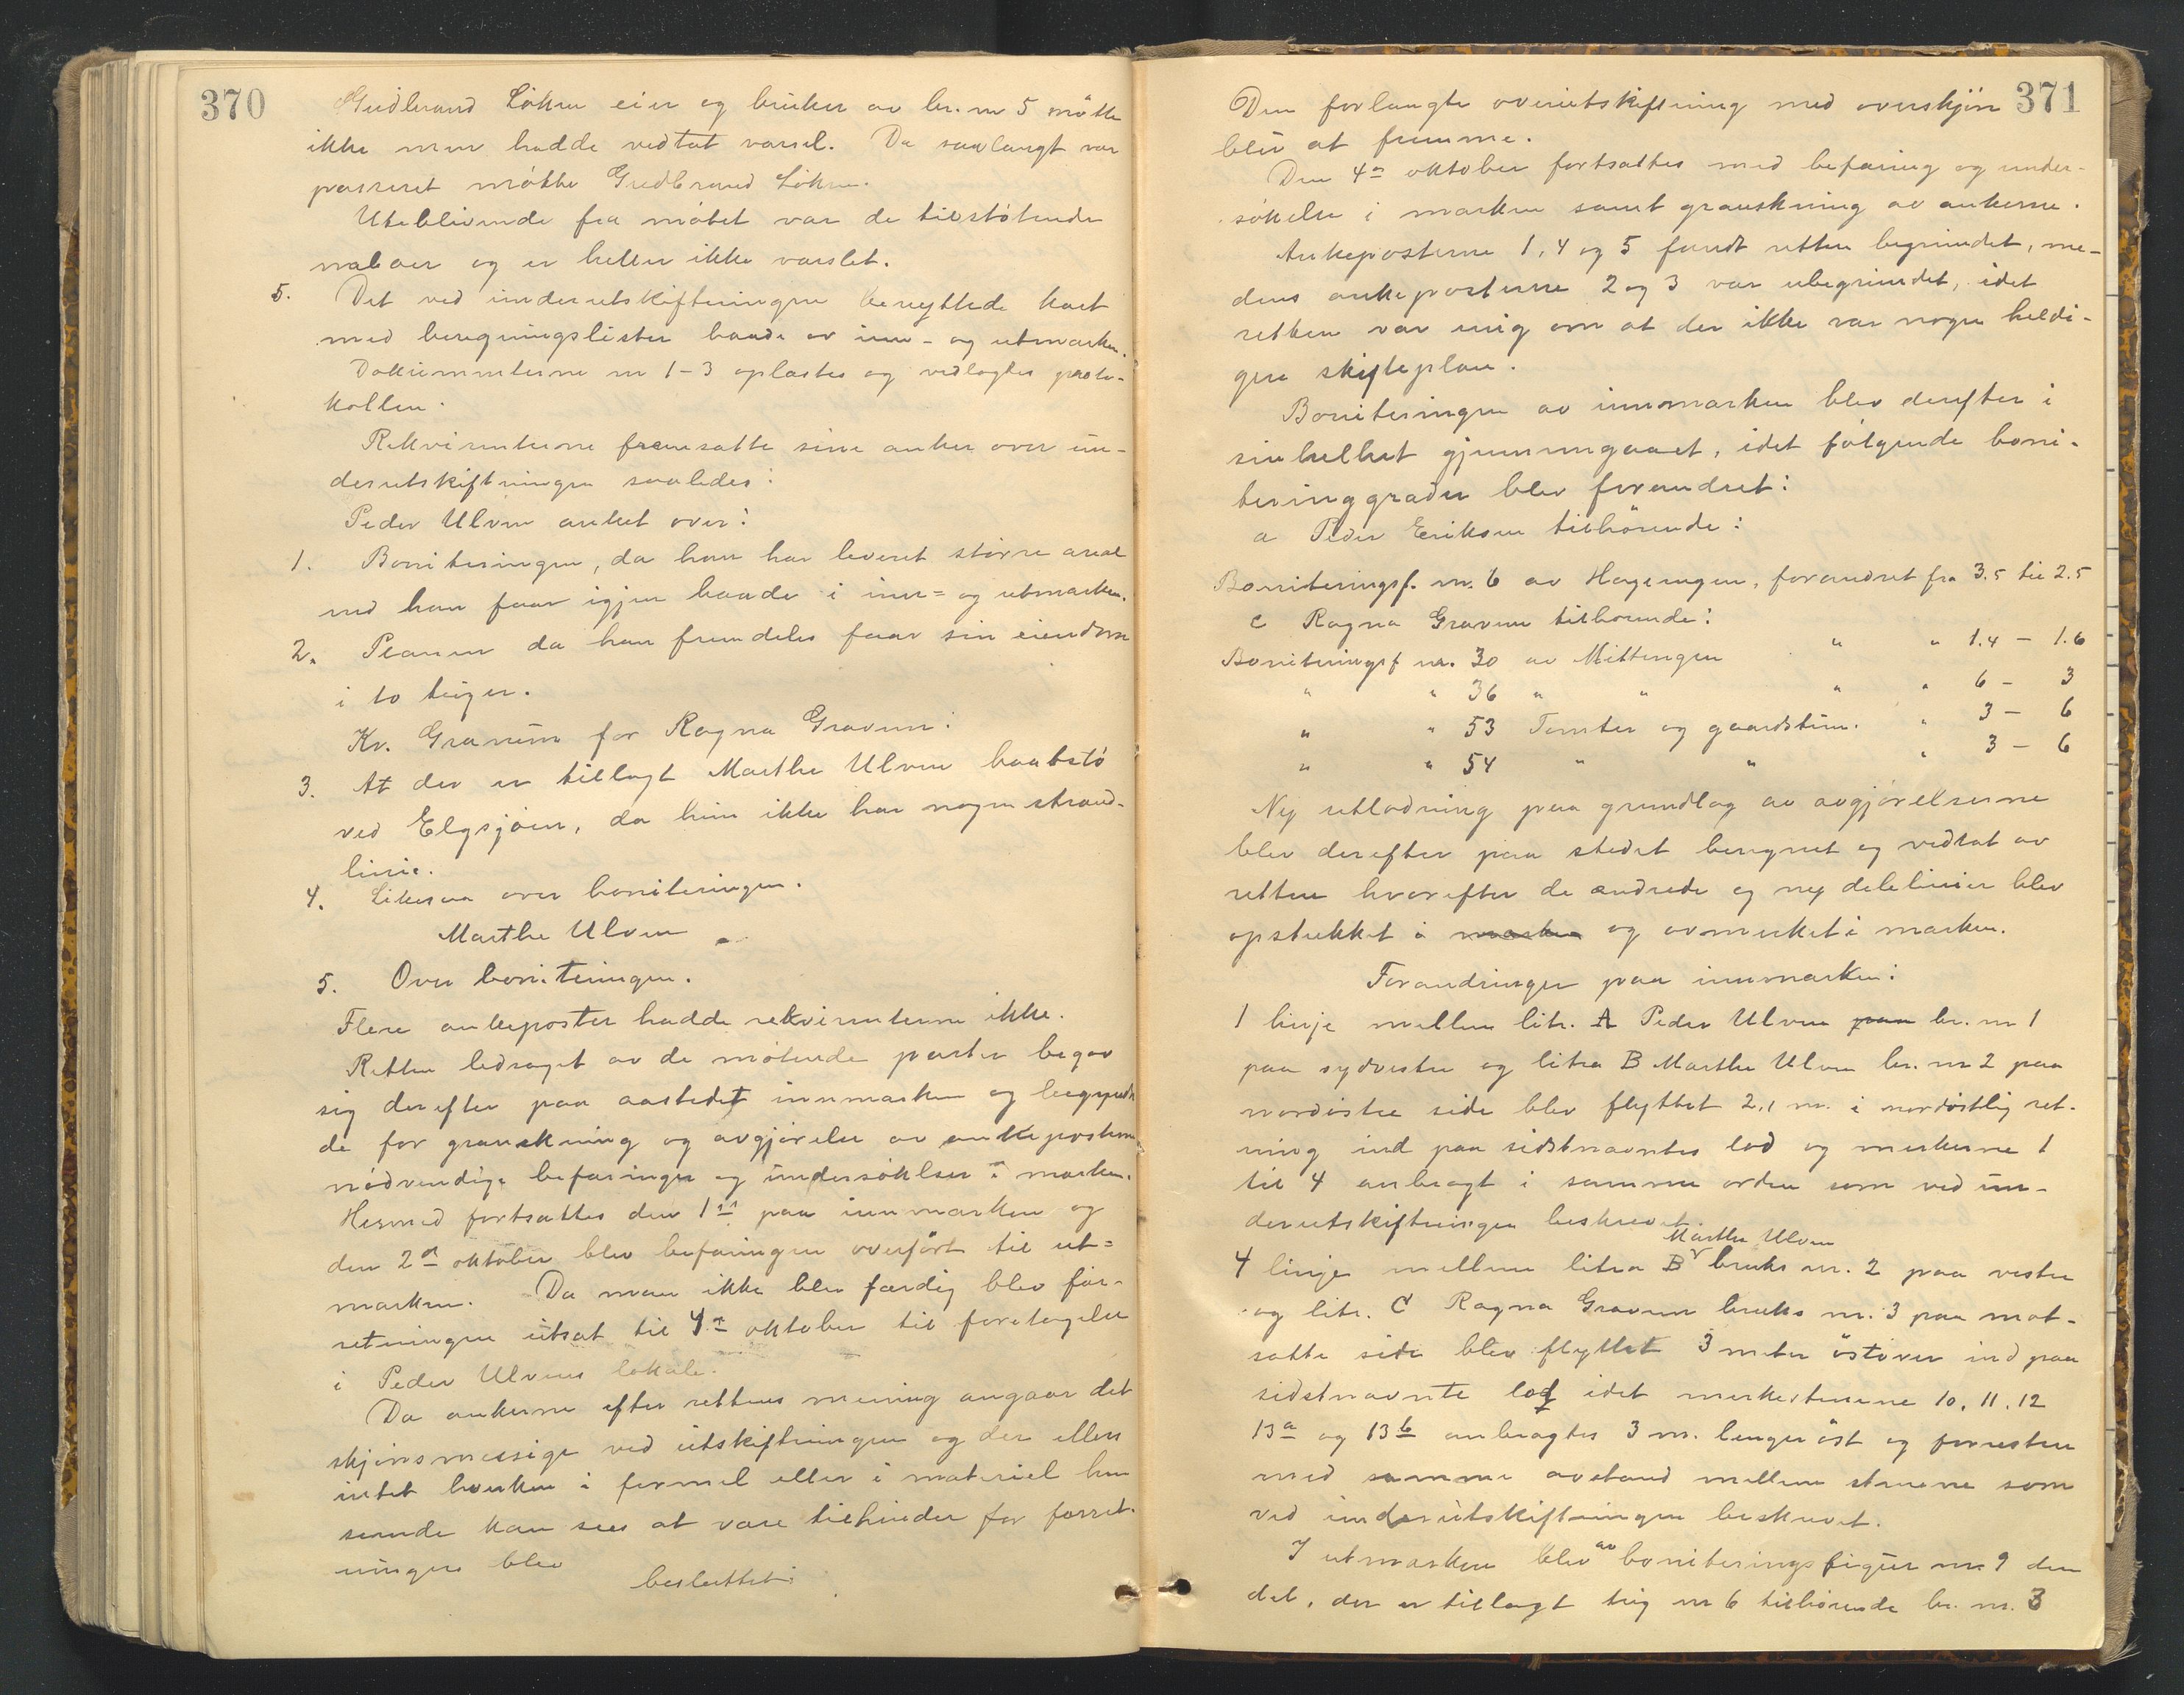 370
Gudbrand Løken eier og bruker av br. nr 5 møtte
ikke men hadde vedtat varsel. Da saalangt var
passeret møtte Gudbrand Løken.
Uteblivende fra møtet var de tilstøtende
naboer og er heller ikke varslet.
5. Det ved underutskiftningen benyttede kart
med beregningslister baade av inn- og utmarken.
Dokumenterne nr 1-3 oplæstes og vedlagtes proto-
kollen.
Rekvirenterne fremsatte sine anker over un-
derutskiftningen saaledes:
Peder Ulven anket over:
1. Boniteringen, da han har leveret større areal
end han faar igjen baade i inn= og utmarken.
2. Planen da han fremdeles faar sin eiendom
i to teiger.
Kr. Granum for Ragna Gravem:
3. At der er tillagt Marthe Ulven baatstø
ved Elgsjøen, da hun ikke har nogen strand-
linie.
4. Likesaa over boniteringen.
Marthe Ulven
5. Over boniteringen.
Flere ankeposter hadde rekvirenterne ikke.
Retten ledsaget av de møtende parter begav
sig derefter paa aastedet innmarken og begynte
de for granskning og avgjørelse av ankeposterne
nødvendige befaringer og undersøkelser i marken.
Hermed fortsattes den 1ste paa innmarken og
den 2n oktober blev befaringen overført til ut=
marken. Da man ikke blev færdig blev for-
retningen utsat til 4n oktober til foretagelse
i Peder Ulvens lokale.
Da ankerne efter rettens mening angaar det
skjønsmessige ved utskiftningen og der ellers
intet hverken i formel eller i materiel hen
seende kan sees at være tilhinder for forret-
ningen blev
besluttet:
371
Den forlangte overutskiftning med overskjøn
blir at fremme.
Den 4n oktober fortsattes med befaring og under-
søkelse i marken samt granskning av ankerne.
Ankeposterne 1, 4 og 5 fandt retten begrundet, me-
dens ankeposterne 2 og 3 var ubegrundet, idet
retten var enig om at der ikke var nogen heldi-
gere skifteplan.
Boniteringen av innmarken blev derefter i
sin helhet gjennemgaaet, idet følgende boni-
teringgrader blev forandret:
a Peder Eriksen tilhørende:
Boniteringsf. nr. 6 av Hageengen, forandret fra 3.5 til 2.5
C Ragna Gravem tilhørende:
Boniteringsf nr. 30 av Mittengen " " 1.4 — 1.6
" " 36 " " " " 6 — 3
" " 53 Tomter og gaardstun. " 3 — 6
" " 54 " " " 3 — 6
Ny utlodning paa grundlag av avgjørelserne
blev derefter paa stedet beregnet og vedtat av
retten hvorefter de ændrede og nye delelinier blev
opstukket i marken og avmerket i marken.
Forandringer paa innmarken:
1 linje mellem litr. A Peder Ulven paa br. nr 1
paa sydvestre og litra B Marthe Ulven br. nr 2 paa
nordøstre side blev flyttet 2,1 m. i nordøstlig ret-
ning ind paa sidstnævntes lod og merkerne 1
til 4 anbragt i samme orden som ved un-
derutskiftningen beskrevet.
Marthe Ulven
4 linje mellem litra B bruks nr. 2 paa vestre
og litr. C Ragna Gravem bruks nr. 3 paa mot-
satte side blev flyttet 3 meter østover ind paa
sidstnævnte lod idet merkestenene 10, 11, 12
13a og 13b anbragtes 3 m. lenger øst og forresten
med samme avstand mellem stenene som
ved underutskiftningen beskrevet.
I utmarken blev av boniteringsfigur nr. 9 den
del, der er tillagt teig nr 6 tilhørende br. nr. 3